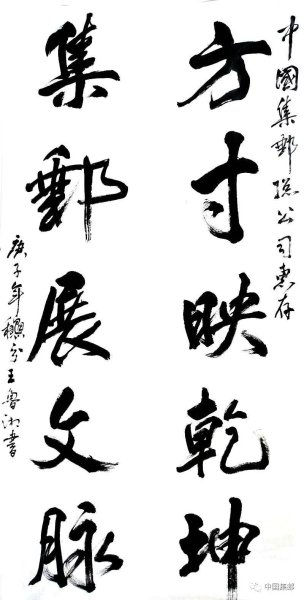 中國集郵總公司惠存
方寸映乾坤
集郵展文脉
庚子年穐分王魯湘書
中国集邮